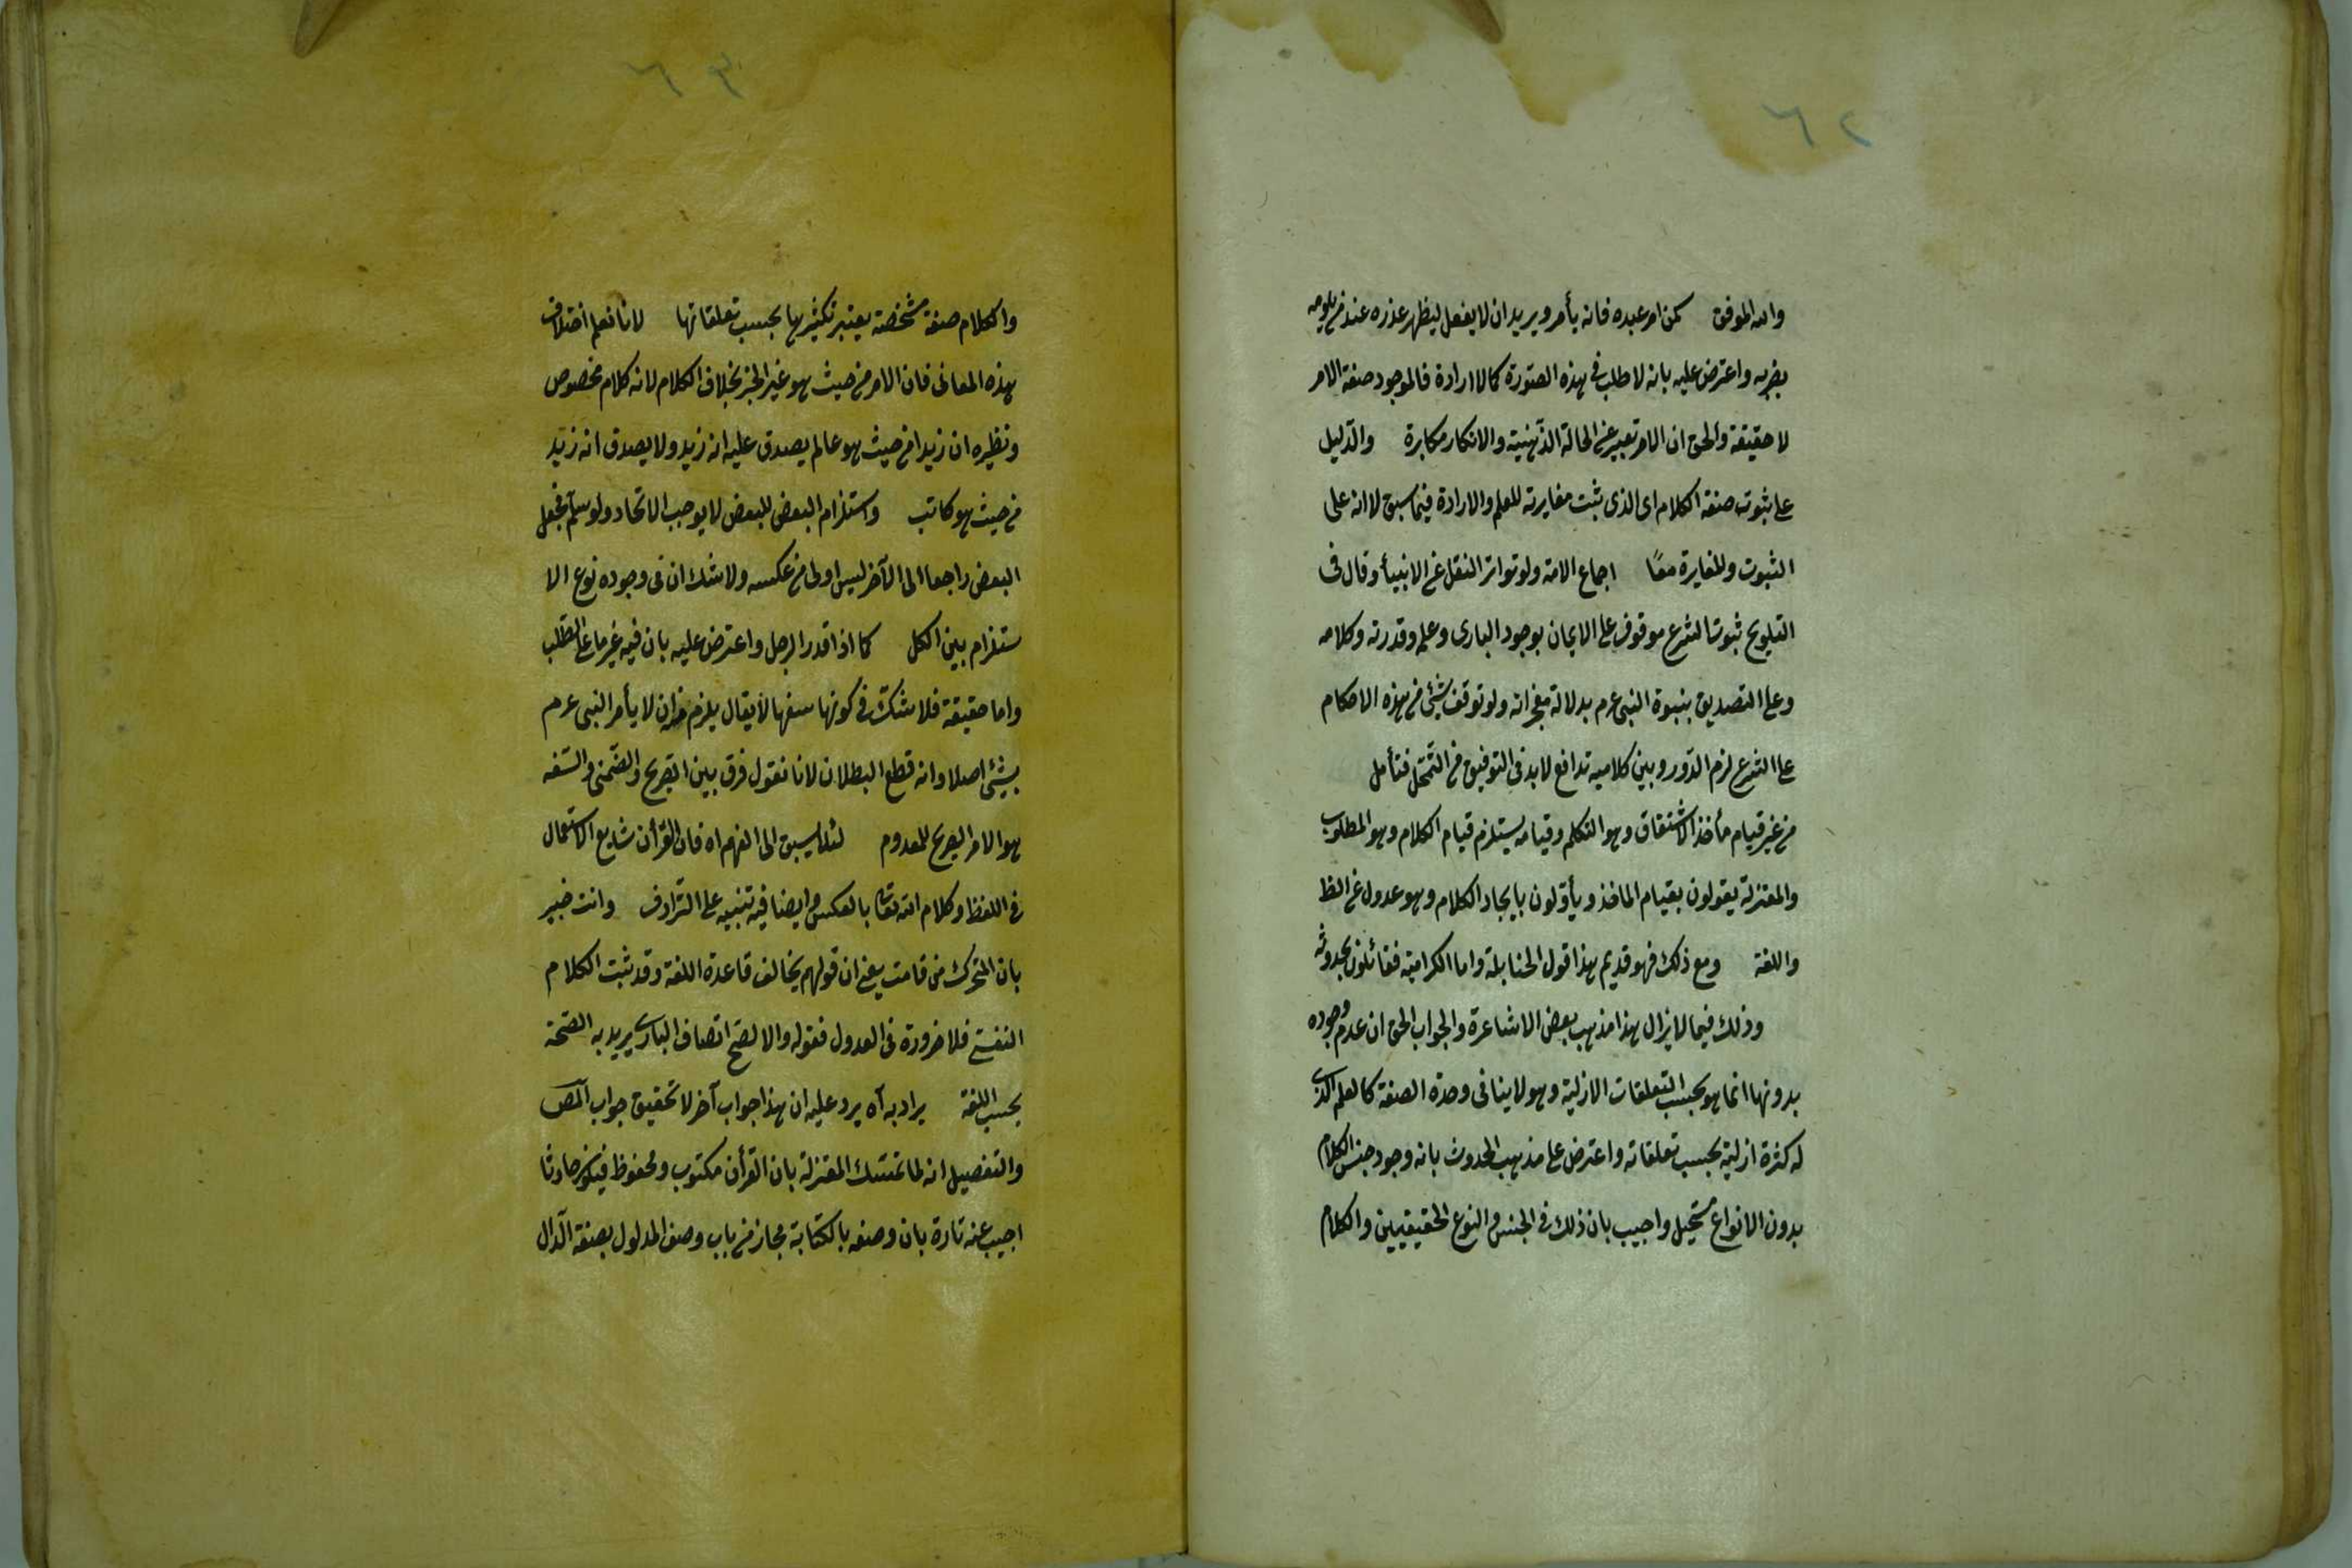 ٦٢
والله الموفق كمن امر عبده فانه يأمر ويريد ان لا يفعل ليظهر عذره عند من يلومه
بضربه واعترض عليه بانه لا طلب فى هذه الصورة كالا ارادة فالموجود صفة الامر
لا حقيقة والحق ان الامر تعبير عن الحالة الذهنية والانكار مكابرة والدليل
على ثبوت صفة الكلام اى الذى ثبت مغايرته للعلم والارادة فيما سبق لا انه على
الثبوت والمغايرة معًا اجماع الامة ولو تواتر النقل عن الانبيأ وقال فى
التلويح ثبوت الشرع موقوف على الايمان بوجود البارى وعلمه وقدرته وكلامه
وعلى التصديق بنبوة النبى عرم بدلالة معجزاته ولو توقف شئ من هذه الاحكام
على الشرع لزم الدور وبين كلاميه تدافع لابد فى التوفيق من التمحل فتأمل
من غير قيام مأخذ الاشتقاق وهو التكلم وقيامه يستلزم قيام الكلام وهو المطلوب
والمعتزلة يقولون بقيام الماخذ ويأولون بايجاد الكلام وهو عدول عن الظ
واللغة ومع ذلك فهو قديم هذا قول الحنابلة واما الكرامية فقائلون بحدوثه
وذلك فيما لا يزال هذا مذهب بعض الاشاعرة والجواب الحق ان عدم وجوده
بدونها انما هو بحسب التعلقات الازلية وهو لا ينافى وحدة الصفة كالعلم الذى
له كثرة ازلية بحسب تعلقاته واعترض على مذهب الحدوث بانه وجود جنس الكلام
بدون الانواع مستحيل واجيب بان ذلك فى الجنس والنوع الحقيقيين والكلام
٦٣
والكلام صفة مشخصة يعتبر تكثيرها بحسب تعلقاتها لانا نعلم اختلاف
هذه المعانى فان الامر من حيث هو غير الخبر بخلاف الكلام لانه كلام مخصوص
ونظيره ان زيدا من حيث هو عالم يصدق عليه انه زيد ولا يصدق انه زيد
من حيث هو كاتب واستلزام البعض للبعض لا يوجب الاتحاد ولو سلم فجعل
البعض راجعا الى الآخر ليس اولى من عكسه ولا شك ان فى وجوده نوع الا
ستلزام بين الكل كما اذا قدر الرجل واعترض عليه بان فيه عزما على الطلب
واما حقيقة فلا شك فى كونها سفها لا يقال يلزم منه ان لا يأمر النبى عرم
بشئ اصلا وانه قطع البطلان لانا نقول فرق بين الصريح والضمنى والسفه
هو الامر الصريح للمعدوم لئلا يسبق الى الفهم اه فان القرأن شايع الاستعمال
فى اللفظ وكلام الله تعالى بالعكس وايضا فيه تنبيه على الترادف وانت خبير
بان المتحرك من قامت يعنى ان قولهم يخالف قاعدة اللغة وقد ثبت الكلام
النفسى فلا ضرورة فى العدول فقوله والا لصح اتصاف البارى يريد به الصحة
بحسب اللغة يراد به آه يرد عليه ان هذا جواب آخر لا تحقيق جواب المص
والتفصيل انه لما تمسك المعتزلة بان القرأن مكتوب ومحفوظ فيكون حادثا
اجيب عنه تارة بان وصفه بالكتابة مجاز من باب وصف المدلول بصفة الدال